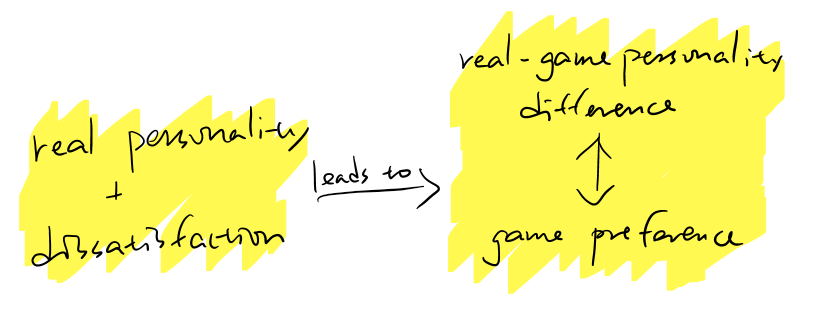 real personality
+
dissatisfaction
leads to
real-game personality
difference
game preference